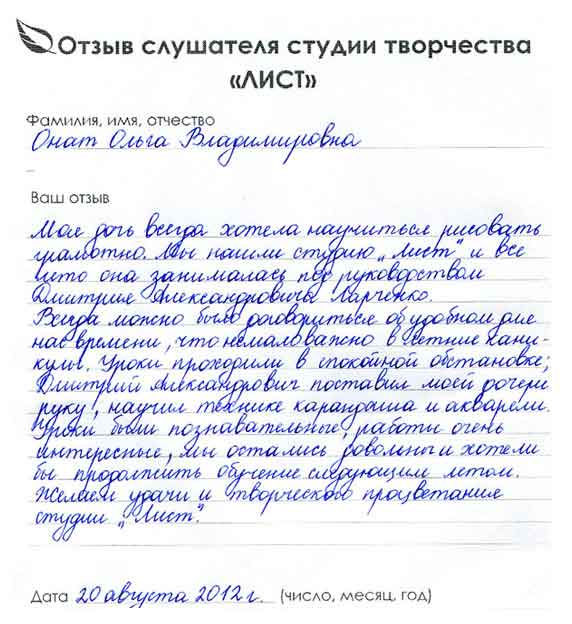 Отзыв слушателя студии творчества
«ЛИСТ»
Фамилия, имя, отчество
Онат Ольга Владимировна
Ваш отзыв
Моя дочь всегда хотела научиться рисовать
грамотно. Мы нашли студию „Лист" и все
лето она занималась под руководством
Дмитрия Александровича Харченко.
Всегда можно было договориться об удобном для
нас времени, что немаловажно в летние кани-
кулы. Уроки проходили в спокойной обстановке;
Дмитрий Александрович поставил моей дочери
руку, научил технике карандаша и акварели.
Уроки были познавательные, работы очень
интересные, мы остались довольны и хотели
бы продолжить обучение следующим летом.
Желаем удачи и творческого процветания
студии „Лист".
Дата 20 августа 2012 г. (число, месяц, год)